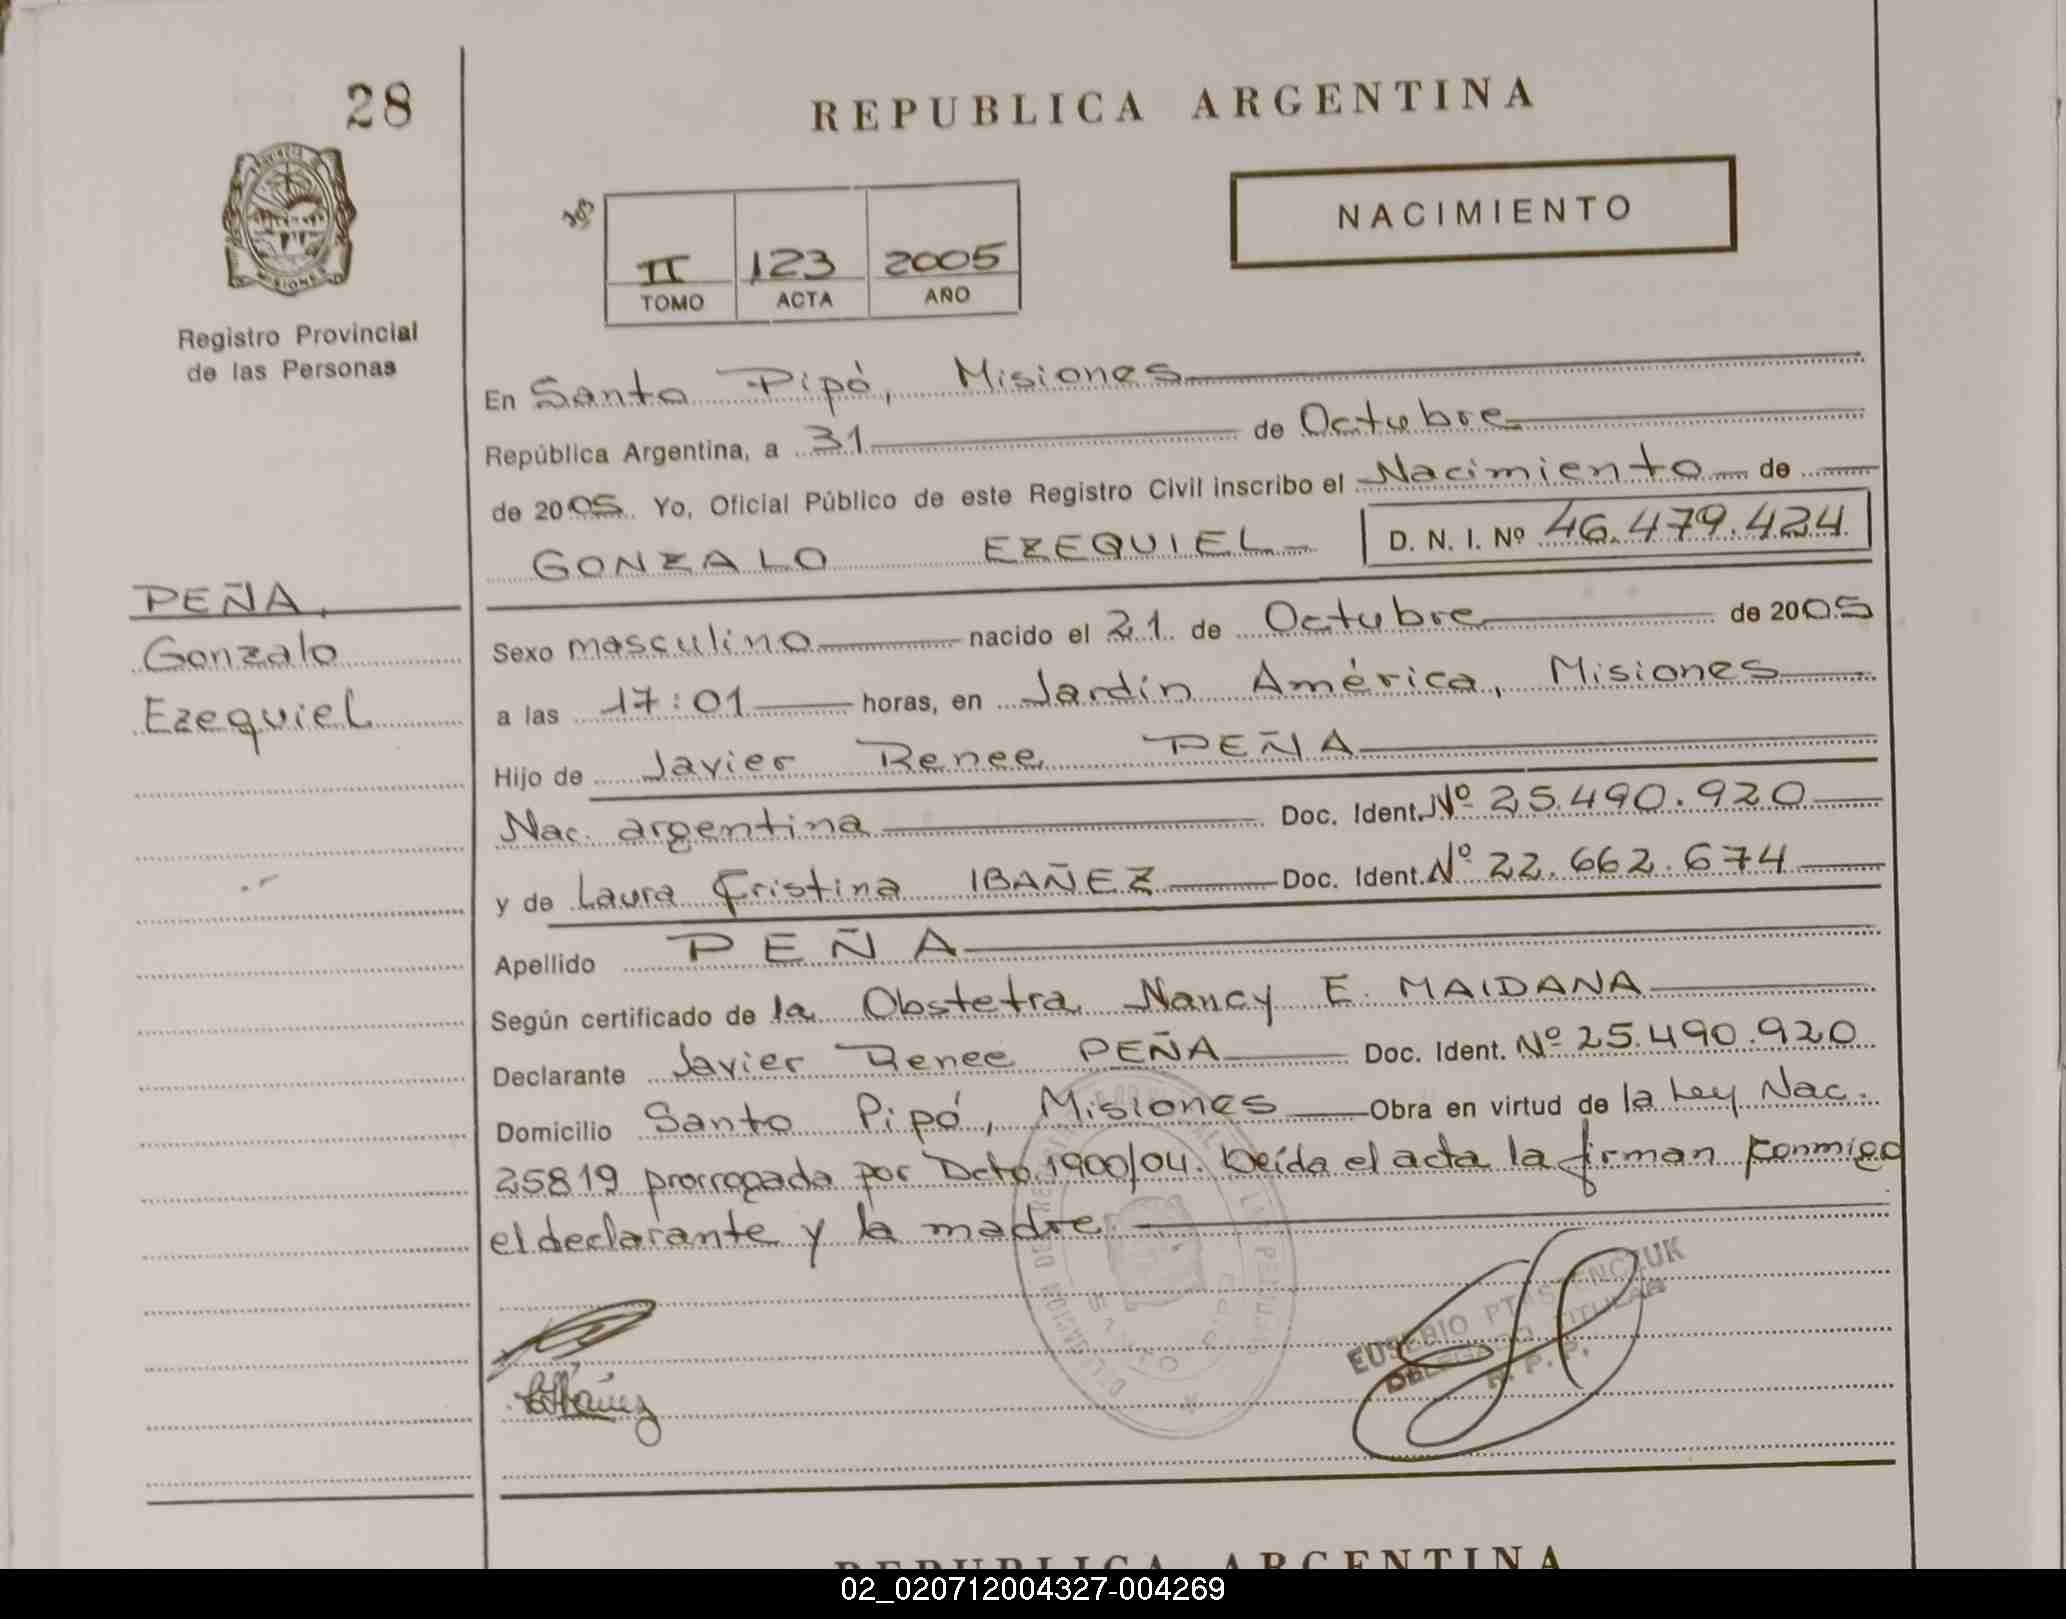 28
REPUBLICA ARGENTINA
NACIMIENTO
303
II 123 2005
TOMO ACTA AÑO
Registro Provincial
de las Personas
En Santo Pipó, Misiones
República Argentina, a 31 de Octubre
de 2005 Yo, Oficial Público de este Registro Civil inscribo el Nacimiento de
GONZALO EZEQUIEL D. N. I. Nº 46.479.424
PEÑA,
Gonzalo
Ezequiel
Sexo masculino nacido el 21 de Octubre de 2005
a las 17:01 horas, en Jardín América, Misiones
Hijo de Javier Renee PEÑA
Nac. argentina Doc. Ident. Nº 25.490.920
y de Laura Cristina IBAÑEZ Doc. Ident. Nº 22.662.674
Apellido PEÑA
Según certificado de la Obstetra Nancy E. MAIDANA
Declarante Javier Renee PEÑA Doc. Ident. Nº 25.490.920
Domicilio Santo Pipó, Misiones Obra en virtud de la Ley Nac.
25819 prorrogada por Dcto. 1900/04. Leída el acta la firman conmigo
el declarante y la madre.
EUSEBIO
DELEGADO TITULAR
R. P. P.
REPUBLICA ARGENTINA
02_020712004327-004269